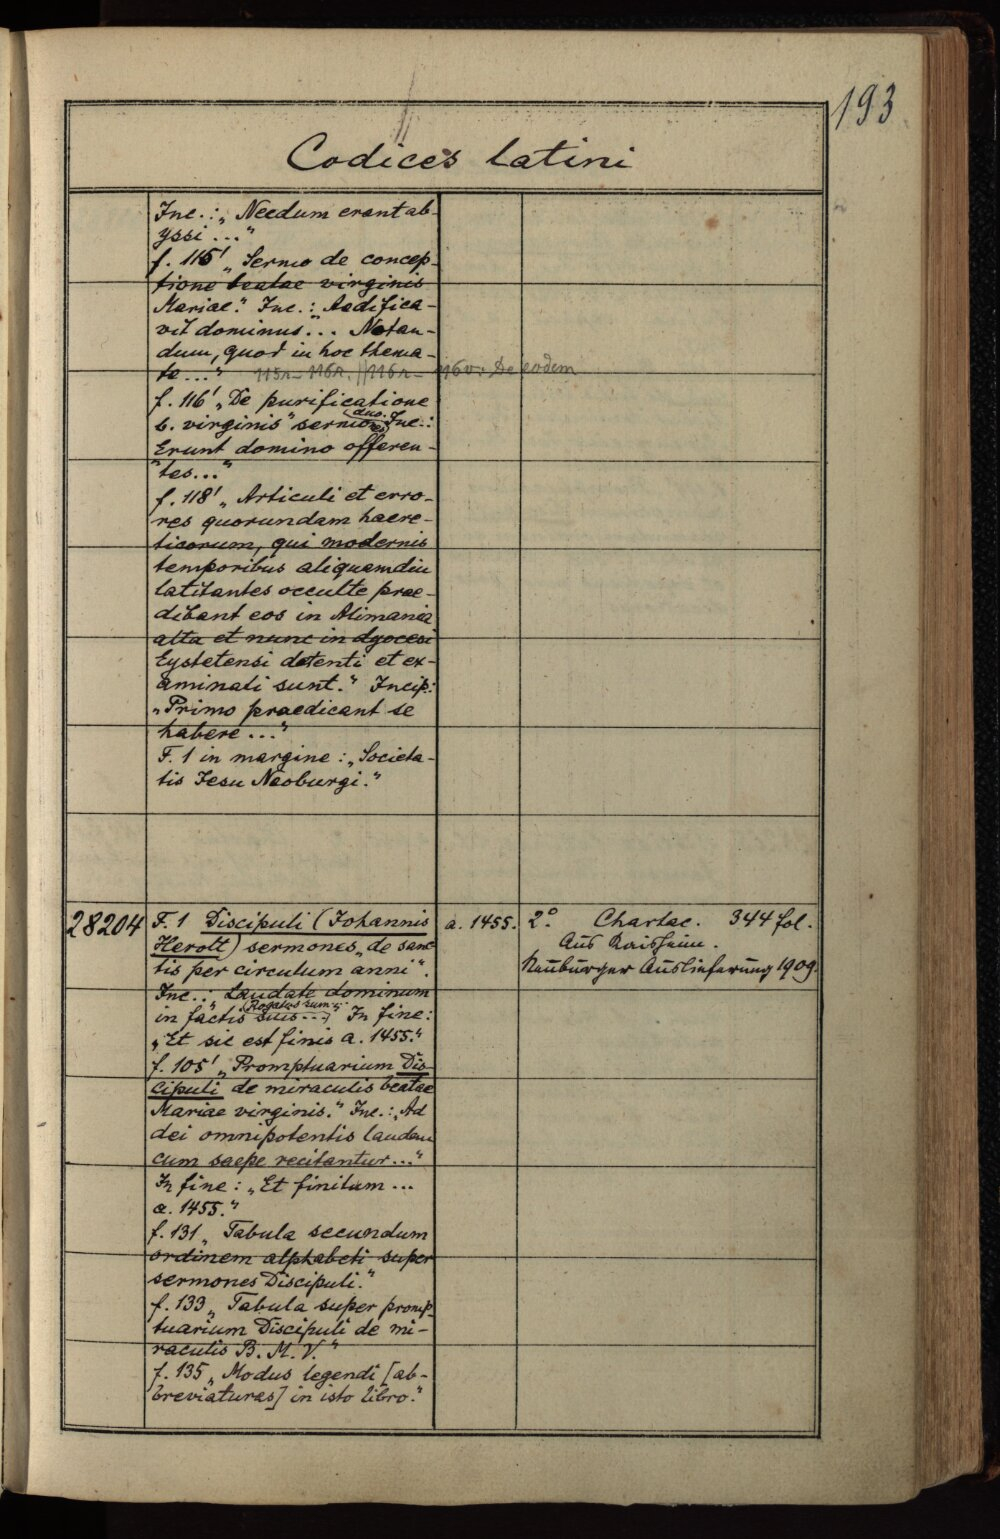 193
Codices latini
Inc.: „Needum erant ab-
yssi ..."
f. 115' „Sermo de concep-
tione beatae virginis
Mariae." Inc.: „Aedifica-
vit dominus ... Notan-
dum, quod in hoc thema-
te ..." 115r–116r. // 116r–116v: De eodem
f. 116' „De purificatione
b. virginis" sermones duo. Inc.:
„Erunt domino offeren-
tes..."
f. 118' „Articuli et erro-
res quorundam haere-
ticorum, qui modernis
temporibus aliquamdiu
latitantes occulte prae-
dibant eos in Alimania
alta et nunc in dyocesi
Eystetensi detenti et ex-
aminati sunt." Incip:
„Primo praedicant se
habere ..."
F. 1 in margine: „Societa-
tis Jesu Neoburgi."
28204 F. 1 Discipuli (Johannis a. 1455. 2° Chartac. 344 fol.
Herolt) sermones „de sanc- Aus Kaisheim.
tis per circulum anni". Neuburger Auslieferung 1909.
Inc.: „Laudate dominum
in factis suis ... Rogatus sum ..." In fine:
„Et sic est finis a. 1455."
f. 105' „Promptuarium Dis-
cipuli de miraculis beatae
Mariae virginis." Inc.: „Ad
dei omnipotentis laudem
cum saepe recitantur ..."
In fine: „Et finitum ...
a. 1455."
f. 131 „Tabula secundum
ordinem alphabeti super
sermones Discipuli."
f. 133 „Tabula super promp-
tuarium Discipuli de mi-
raculis B. M. V."
f. 135 „Modus legendi [ab-
breviaturas] in isto libro."